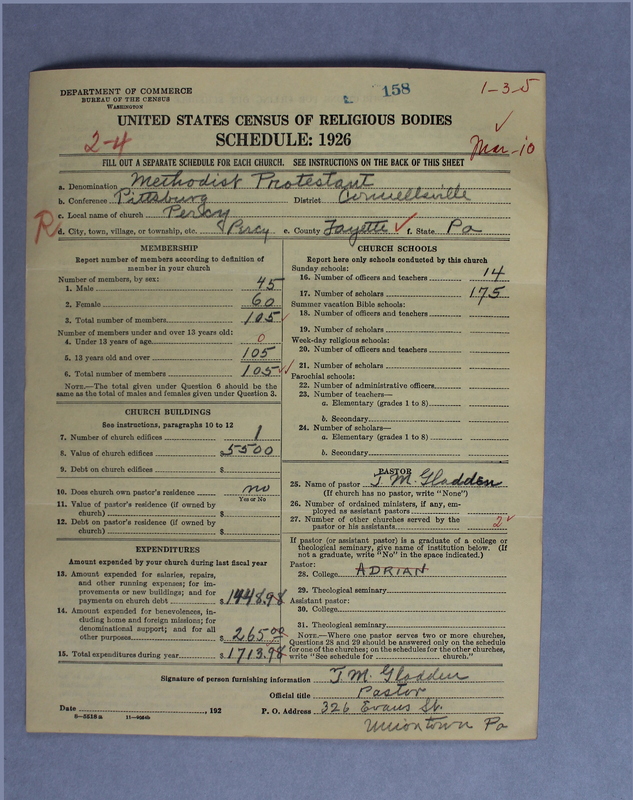 DEPARTMENT OF COMMERCE
BUREAU OF THE CENSUS
WASHINGTON
2 158
1-3-5
UNITED STATES CENSUS OF RELIGIOUS BODIES
2-4 SCHEDULE: 1926
Mar-10
FILL OUT A SEPARATE SCHEDULE FOR EACH CHURCH. SEE INSTRUCTIONS ON THE BACK OF THIS SHEET
a. Denomination Methodist Protestant
b. Conference Pittsburg District Connellsville
c. Local name of church Percy
R
d. City, town, village, or township, etc. Percy e. County Fayette f. State Pa
MEMBERSHIP
Report number of members according to definition of
member in your church
Number of members, by sex:
1. Male 45
2. Female 60
3. Total number of members 105
Number of members under and over 13 years old:
4. Under 13 years of age 0
5. 13 years old and over 105
6. Total number of members 105
NOTE.—The total given under Question 6 should be
same as the total of males and females given under Question 3.
CHURCH BUILDINGS
See instructions, paragraphs 10 to 12
7. Number of church edifices 1
8. Value of church edifices $5500
9. Debt on church edifices $
10. Does church own pastor's residence no
Yes or No
11. Value of pastor's residence (if owned by
church) $
12. Debt on pastor's residence (if owned by
church) $
EXPENDITURES
Amount expended by your church during last fiscal year
13. Amount expended for salaries, repairs,
and other running expenses; for im-
provements or new buildings; and for
payments on church debt $1448.98
14. Amount expended for benevolences, in-
cluding home and foreign missions; for
denominational support; and for all
other purposes $265.00
15. Total expenditures during year $1713.98
CHURCH SCHOOLS
Report here only schools conducted by this church
Sunday schools:
16. Number of officers and teachers 14
17. Number of scholars 175
Summer vacation Bible schools:
18. Number of officers and teachers
19. Number of scholars
Week-day religious schools:
20. Number of officers and teachers
21. Number of scholars
Parochial schools:
22. Number of administrative officers
23. Number of teachers—
a. Elementary (grades 1 to 8)
b. Secondary
24. Number of scholars—
a. Elementary (grades 1 to 8)
b. Secondary
PASTOR
25. Name of pastor T. M. Gladden
(If church has no pastor, write "None")
26. Number of ordained ministers, if any, em-
ployed as assistant pastors
27. Number of other churches served by the
pastor or his assistants 2
If pastor (or assistant pastor) is a graduate of a college or
theological seminary, give name of institution below. (If
not a graduate, write "No" in the space indicated.)
Pastor:
28. College ADRIAN
29. Theological seminary
Assistant pastor:
30. College
31. Theological seminary
NOTE.—Where one pastor serves two or more churches,
Questions 28 and 29 should be answered only on the schedule
for one of the churches; on the schedules for the other churches,
write "See schedule for church."
Signature of person furnishing information T. M. Gladden
Official title Pastor
Date , 192 P. O. Address 326 Evans St.
Uniontown Pa